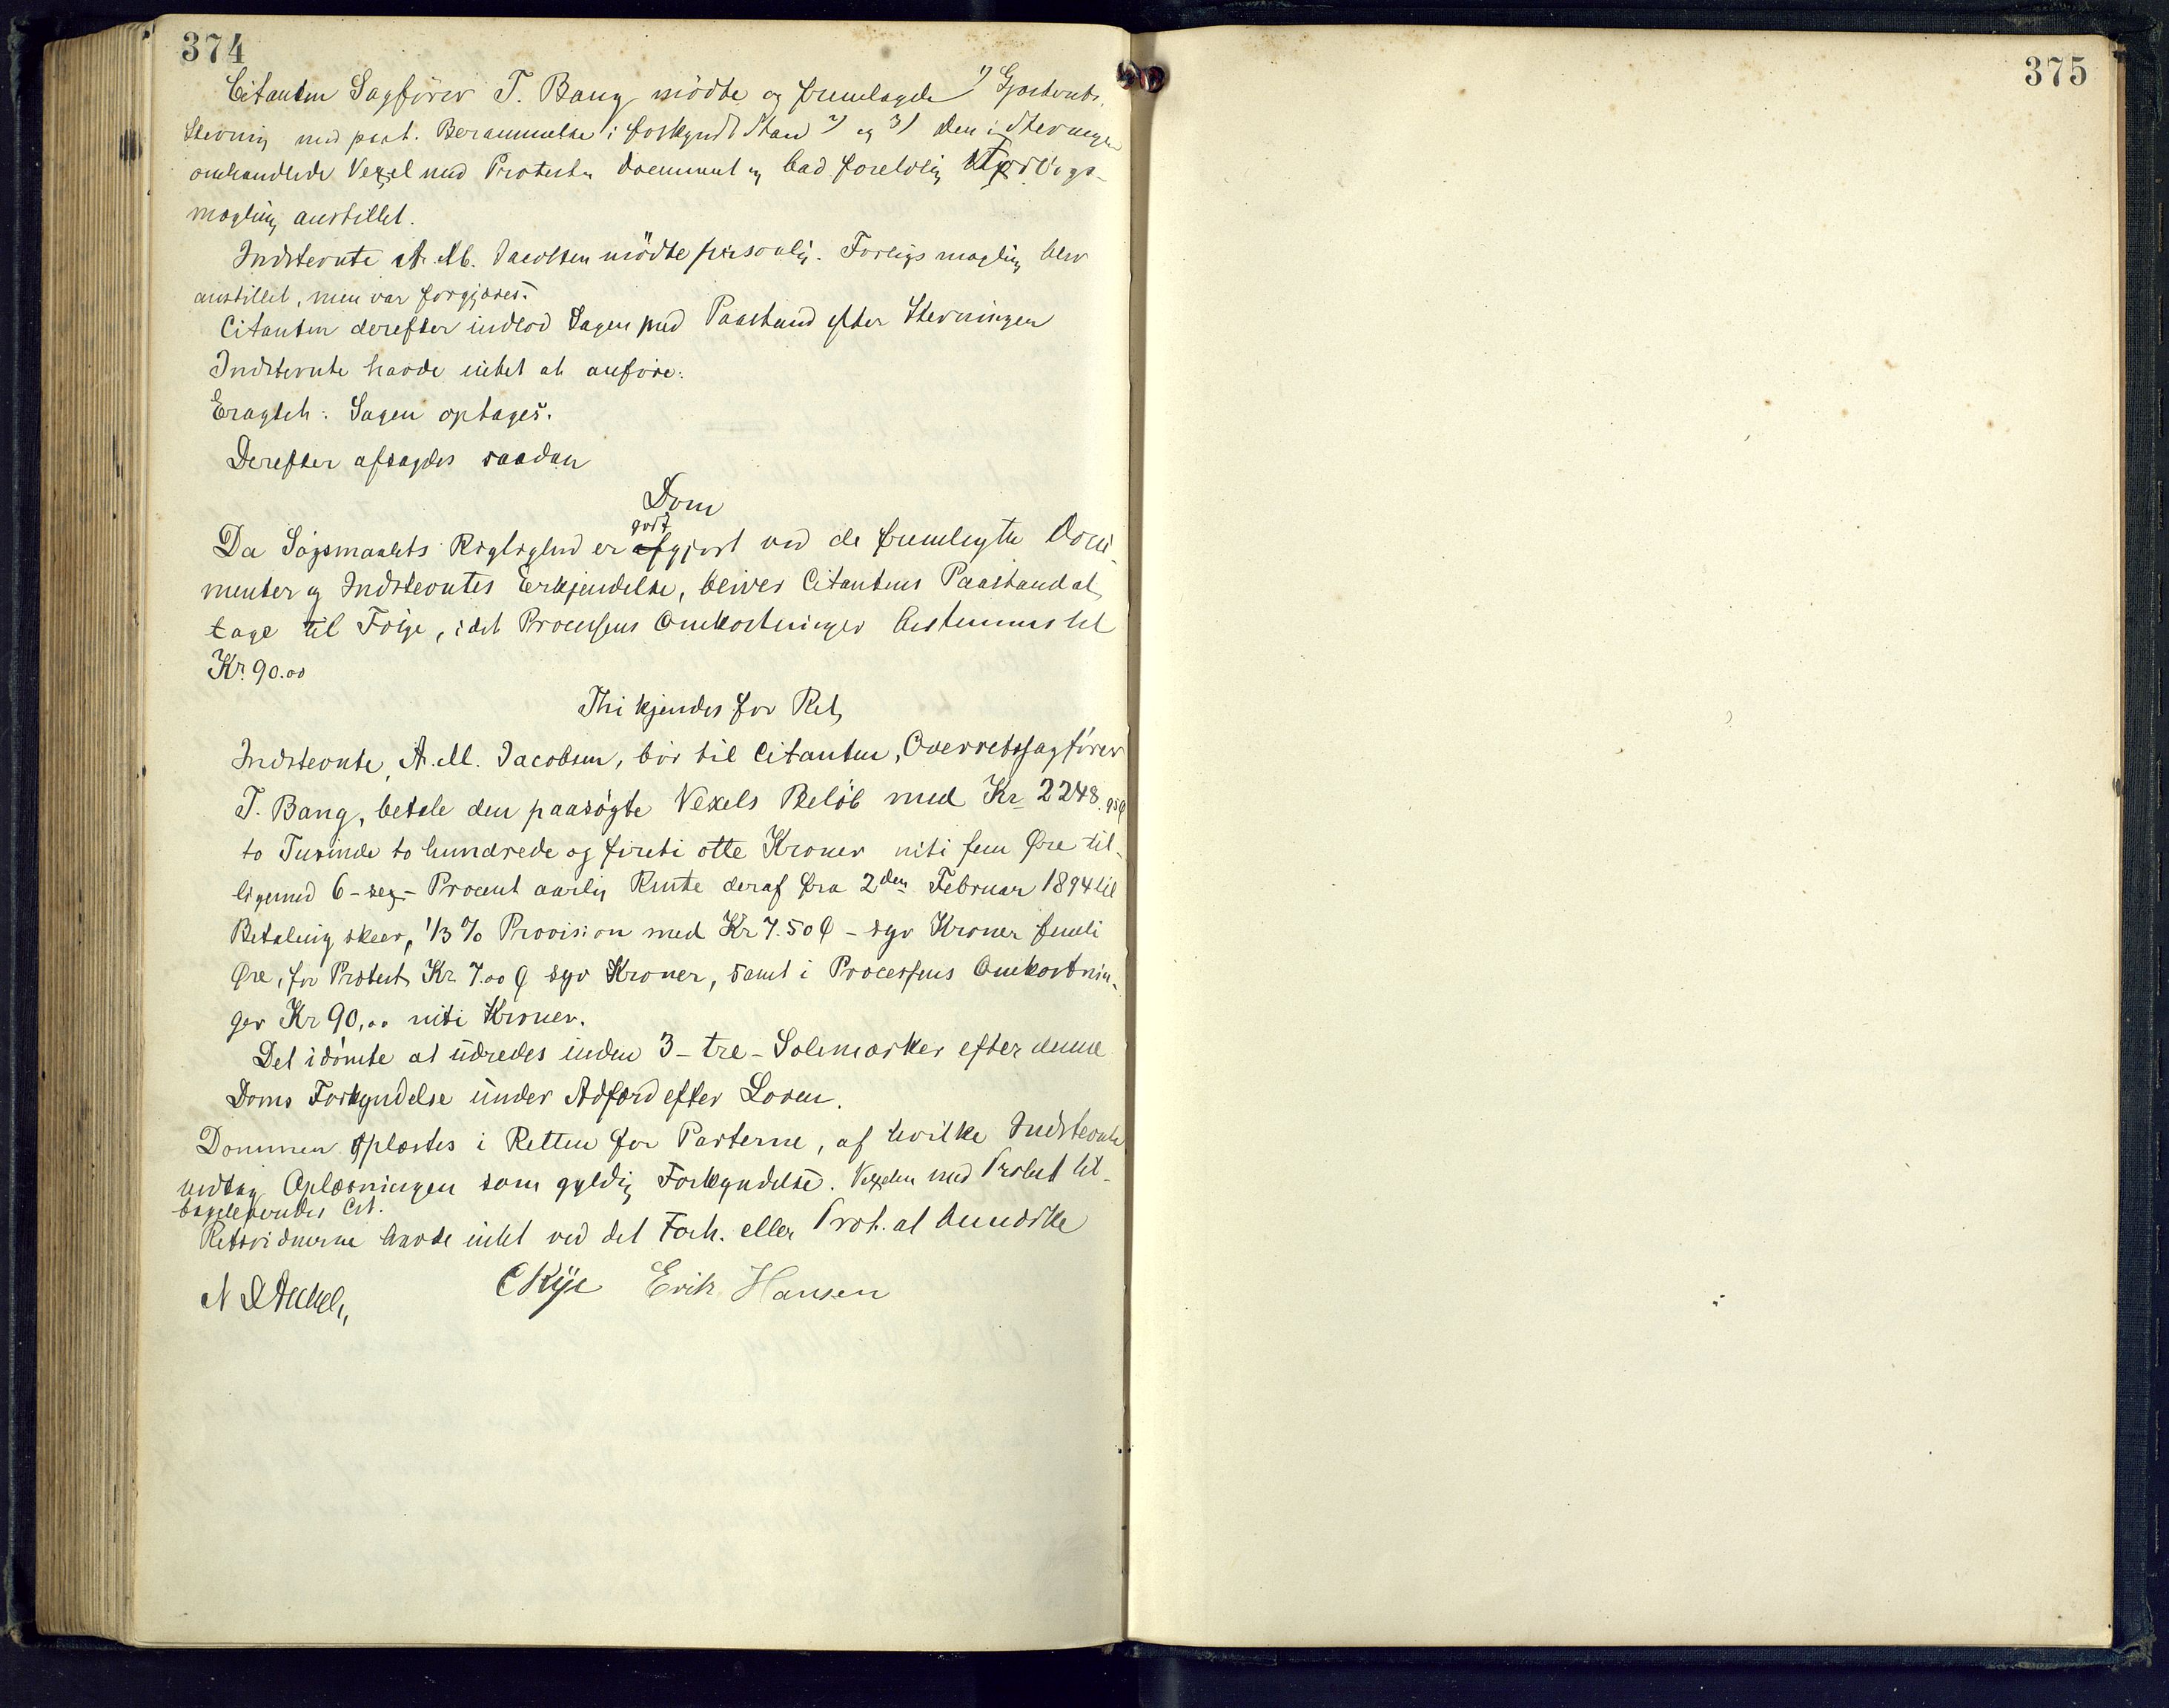 374
375
Citanten Sagfører T. Bang mödte og fremlagde 1) Gjæsterets
Stevning med paat. Berammelse i forkyndt Stand 2) og 3) den i Stevningen
omhandlede Vexel med Protestdocument og bad foreløbig Forligs-
mægling anstillet.
Indstevnte A. M. Jacobsen mödte personlig. Forligsmægling blev
anstillet, men var forgjæves.
Citanten derefter indlod Sagen med Paastand efter Stevningen
Indstevnte havde intet at anføre.
Eragtet: Sagen optages.
Derefter afsagdes saadan
Dom
godt
Da Søgsmaalets Rigtighed er afgjort ved de fremlagte Docu
menter og Indstevntes Erkjendelse, bliver Citantens Paastand at
tage til Følge, idet Processens Omkostninger bestemmes til
Kr. 90.00
Thi kjendes for Ret,
Indstevnte, A. M. Jacobsen, bör til Citanten, Overretssagfører
T. Bang, betale den paasøgte Vexels Beløb med Kr 2248.95
to Tusinde to hundrede og fireti otte Kroner niti fem Øre til-
ligemed 6 - sex - Procent aarlig Rente deraf fra 2den Februar 1894 til
Betaling skeer, 1/3 % Provision med Kr 7.50 - syv Kroner femti
Øre, for Protest Kr. 7.00 syv Kroner, samt i Processens Omkostnin-
ger Kr 90,00 niti Kroner.
Det idömte at udredes inden 3 - tre - Solemærker efter denne
Doms Forkyndelse under Adfærd efter Loven.
Dommen oplæstes i Retten for Parterne, af hvilke Indstevnte
vedtog Oplæsningen som gyldig Forkyndelse. Vexelen med Protest til-
bageleveredes Cit.
Retsvidnerne havde intet ved det Forh. eller Prot. at bemærke
C Kye Erik Hansen